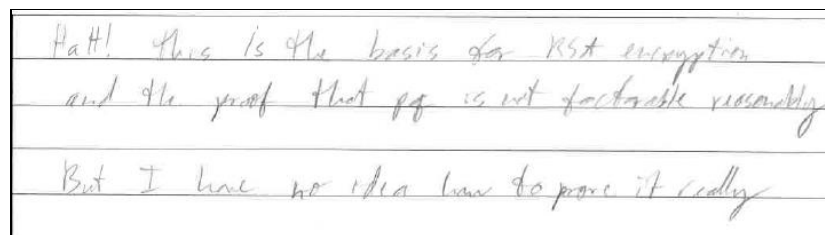 Hatt! this is the basis for RSA encryption
and the proof that pq is not factorable reasonably
But I have no idea how to prove it really